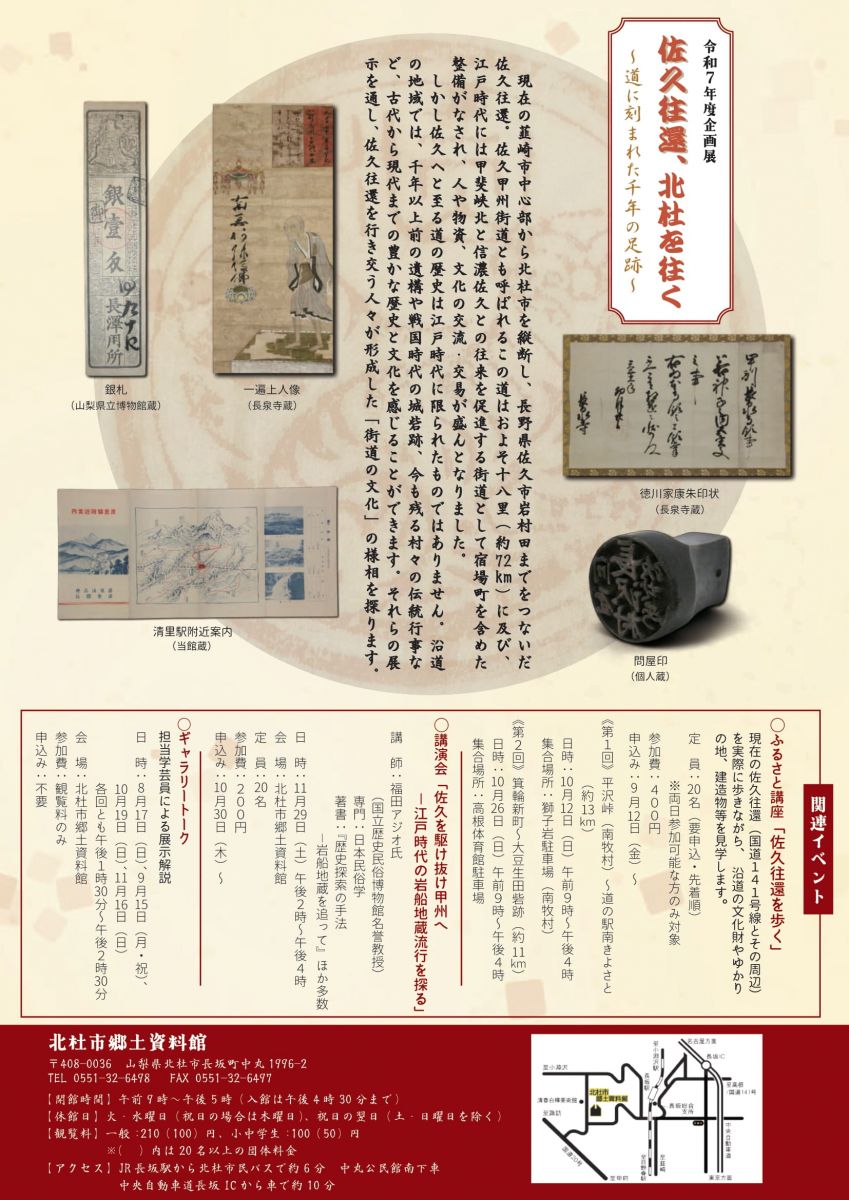 令和７年度企画展
佐久往還、北杜を往く
～道に刻まれた千年の足跡～
現在の韮崎市中心部から北杜市を縦断し、長野県佐久市岩村田までをつないだ
佐久往還。佐久甲州街道とも呼ばれるこの道はおよそ十八里（約72km）に及び、
江戸時代には甲斐峡北と信濃佐久との往来を促進する街道として宿場町を含めた
整備がなされ、人や物資、文化の交流・交易が盛んとなりました。
しかし佐久へと至る道の歴史は江戸時代に限られたものではありません。沿道
の地域では、千年以上前の遺構や戦国時代の城砦跡、今も残る村々の伝統行事な
ど、古代から現代までの豊かな歴史と文化を感じることができます。それらの展
示を通し、佐久往還を行き交う人々が形成した「街道の文化」の様相を探ります。
銀壹匁
長澤用所
銀札
（山梨県立博物館蔵）
一遍上人像
（長泉寺蔵）
徳川家康朱印状
（長泉寺蔵）
清里駅附近案内
（当館蔵）
問屋印
（個人蔵）
関連イベント
○ふるさと講座「佐久往還を歩く」
現在の佐久往還（国道１４１号線とその周辺）
を実際に歩きながら、沿道の文化財やゆかり
の地、建造物等を見学します。
定　員：20名（要申込・先着順）
※両日参加可能な方のみ対象
参加費：４００円
申込み：９月12日（金）～
《第１回》平沢峠（南牧村）～道の駅南きよさと
（約13km）
日時：10月12日（日）午前９時～午後４時
集合場所：獅子岩駐車場（南牧村）
《第２回》箕輪新町～大豆生田砦跡（約11km）
日時：10月26日（日）午前９時～午後４時
集合場所：高根体育館駐車場
○講演会「佐久を駆け抜け甲州へ
―江戸時代の岩船地蔵流行を探る」
講　師：福田アジオ氏
（国立歴史民俗博物館名誉教授）
専門：日本民俗学
著書：『歴史探索の手法
―岩船地蔵を追って』ほか多数
日　時：11月29日（土）午後２時～午後４時
会　場：北杜市郷土資料館
定　員：20名
参加費：２００円
申込み：10月30日（木）～
○ギャラリートーク
担当学芸員による展示解説
日　時：８月17日（日）、９月15日（月・祝）、
10月19日（日）、11月16日（日）
各回とも午後１時30分～午後２時30分
会　場：北杜市郷土資料館
参加費：観覧料のみ
申込み：不要
北杜市郷土資料館
〒408-0036　山梨県北杜市長坂町中丸1996-2
TEL 0551-32-6498　FAX 0551-32-6497
【開館時間】午前９時～午後５時（入館は午後４時30分まで）
【休館日】火・水曜日（祝日の場合は木曜日）、祝日の翌日（土・日曜日を除く）
【観覧料】一般：210（100）円、小中学生：100（50）円
※（　）内は20名以上の団体料金
【アクセス】JR長坂駅から北杜市民バスで約６分　中丸公民館南下車
中央自動車道長坂ICから車で約10分
至小淵沢
至小淵沢駅
名古屋方面
長坂IC
長坂駅
至高根
（国道141号）
清春白樺美術館
北杜市
郷土資料館
長坂総合
支所
至諏訪
国道20号
至甲府
至日野春駅
至韮崎
中央自動車道
東京方面